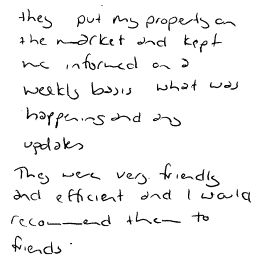 they put my property on
the market and kept
me informed on a
weekly basis what was
happening and any
updates
They were very friendly
and efficient and I would
recommend them to
friends.